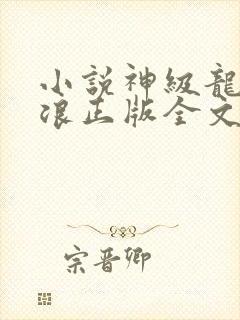 小説神級龍
浪正版全文
宗晋卿